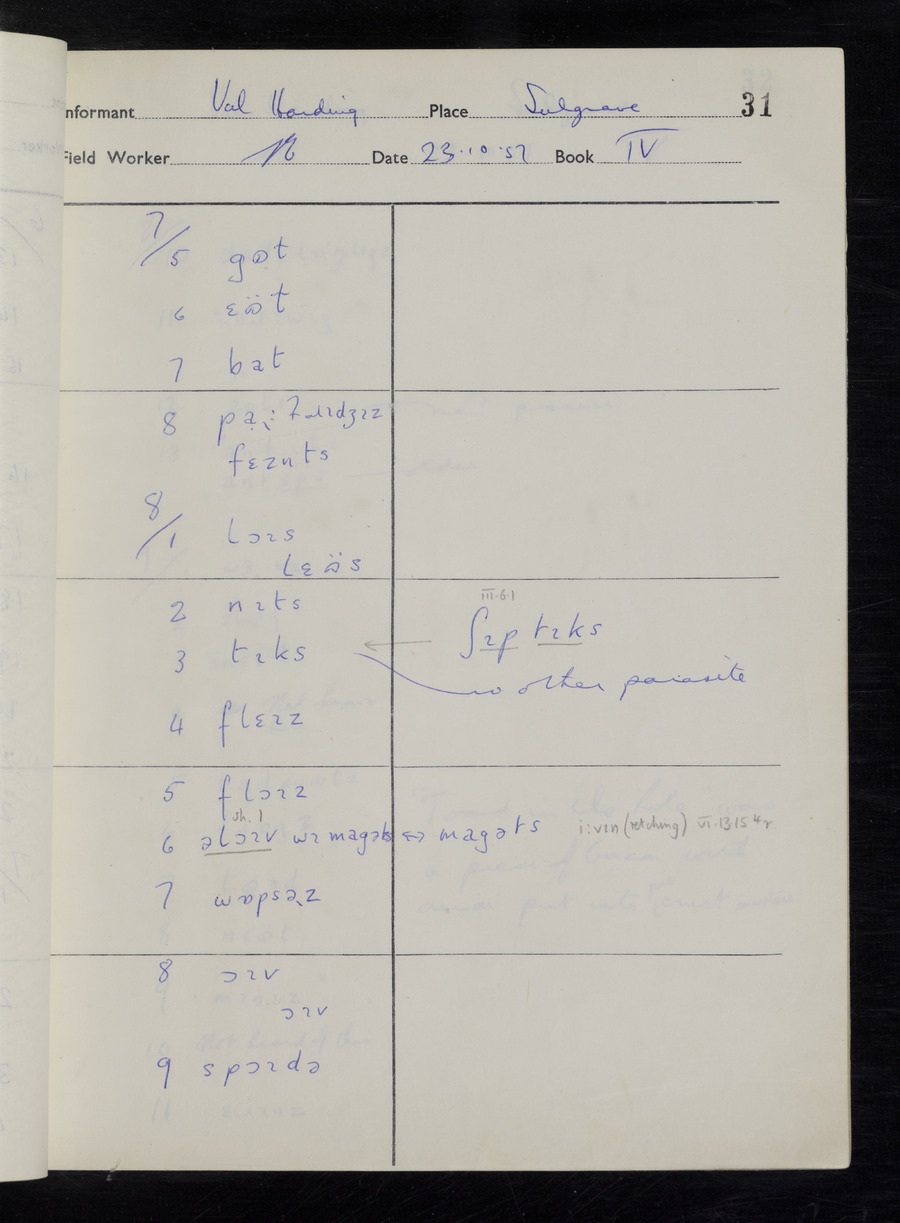 Informant Val Harding Place Sulgrave 31
Field Worker Date 23.10.57 Book IV
7/5 gɒt
6 ɛɒ̈t
7 bat
8
fɛɪnts
8/1 lɔɪs
lɛɒ̈s
2 nɪts
III.6.1
ʃɪp tɪks
3 tɪks
no other parasite
4 flɛɪz
5 flɔɪz
sh. 1
6 əlɔɪv wɪ magəts ⇔ magəts i:vɪn (retching) VI.13.15
7 wɒpsəz
8 ɔɪv
ɔɪv
9 spɔɪdə